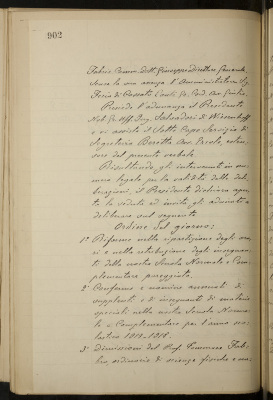 902
Fabris Comm. Dott. Giuseppe Direttore Generale
Scusa la sua assenza l'Amministratore Sig.
Feria di Cossato Conte Gr. Cord. Av.
Presiede l'adunanza il Presidente
Nob. Gr. Uff. Ing. Salvadori di Wiesenhoff
e vi assiste il Sotto Capo Servizio di
Segreteria Beratta Avv. Ercole, esten-
sore del presente verbale.
Risultando gli intervenuti in nu-
mero legale per la validità delle de-
liberazioni, il Presidente dichiara aper-
ta la seduta ed invita gli adunati a
deliberare sul seguente
Ordine del giorno:
1° Riforme nella ripartizione degli ora-
ri e nella retribuzione degli insegnan-
ti della nostra Scuola Normale e Com-
plementare pareggiata.
2° Conferme e nomine annuali di
supplenti e di insegnanti di materie
speciali nella nostra Scuola Norma-
le e Complementare per l'anno sco-
lastico 1917-1918.
3° Dimissioni del Prof. Tommaso
ordinario di scienze fisiche e na-